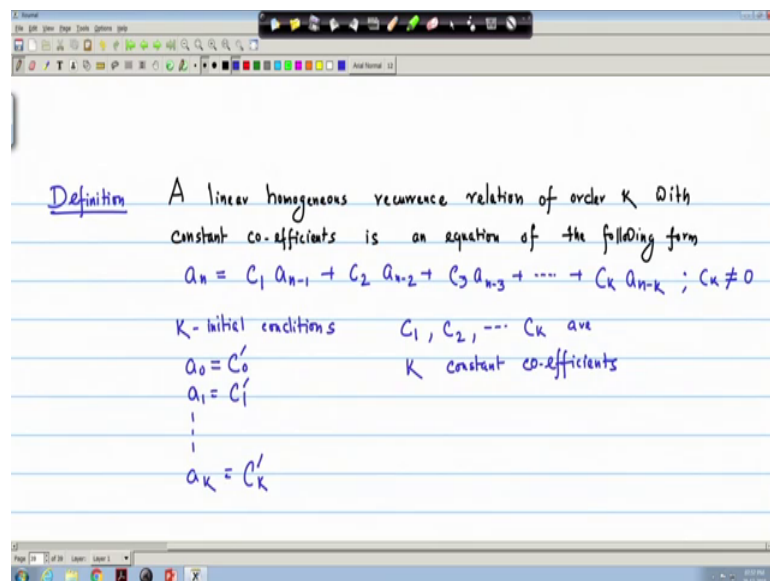 Journal
File Edit View Page Tools Options Help
Arial Normal 12
Definition A linear homogeneous recurrence relation of order K with
constant co-efficients is an equation of the following form
aₙ = C₁ aₙ₋₁ + C₂ aₙ₋₂ + C₃ aₙ₋₃ + ---- + Cₖ aₙ₋ₖ ; Cₖ ≠ 0
K-initial conditions C₁, C₂, --- Cₖ are
a₀ = C₀' K constant co-efficients
a₁ = C₁'
aₖ = Cₖ'
Page 39 of 39 Layer: Layer 1